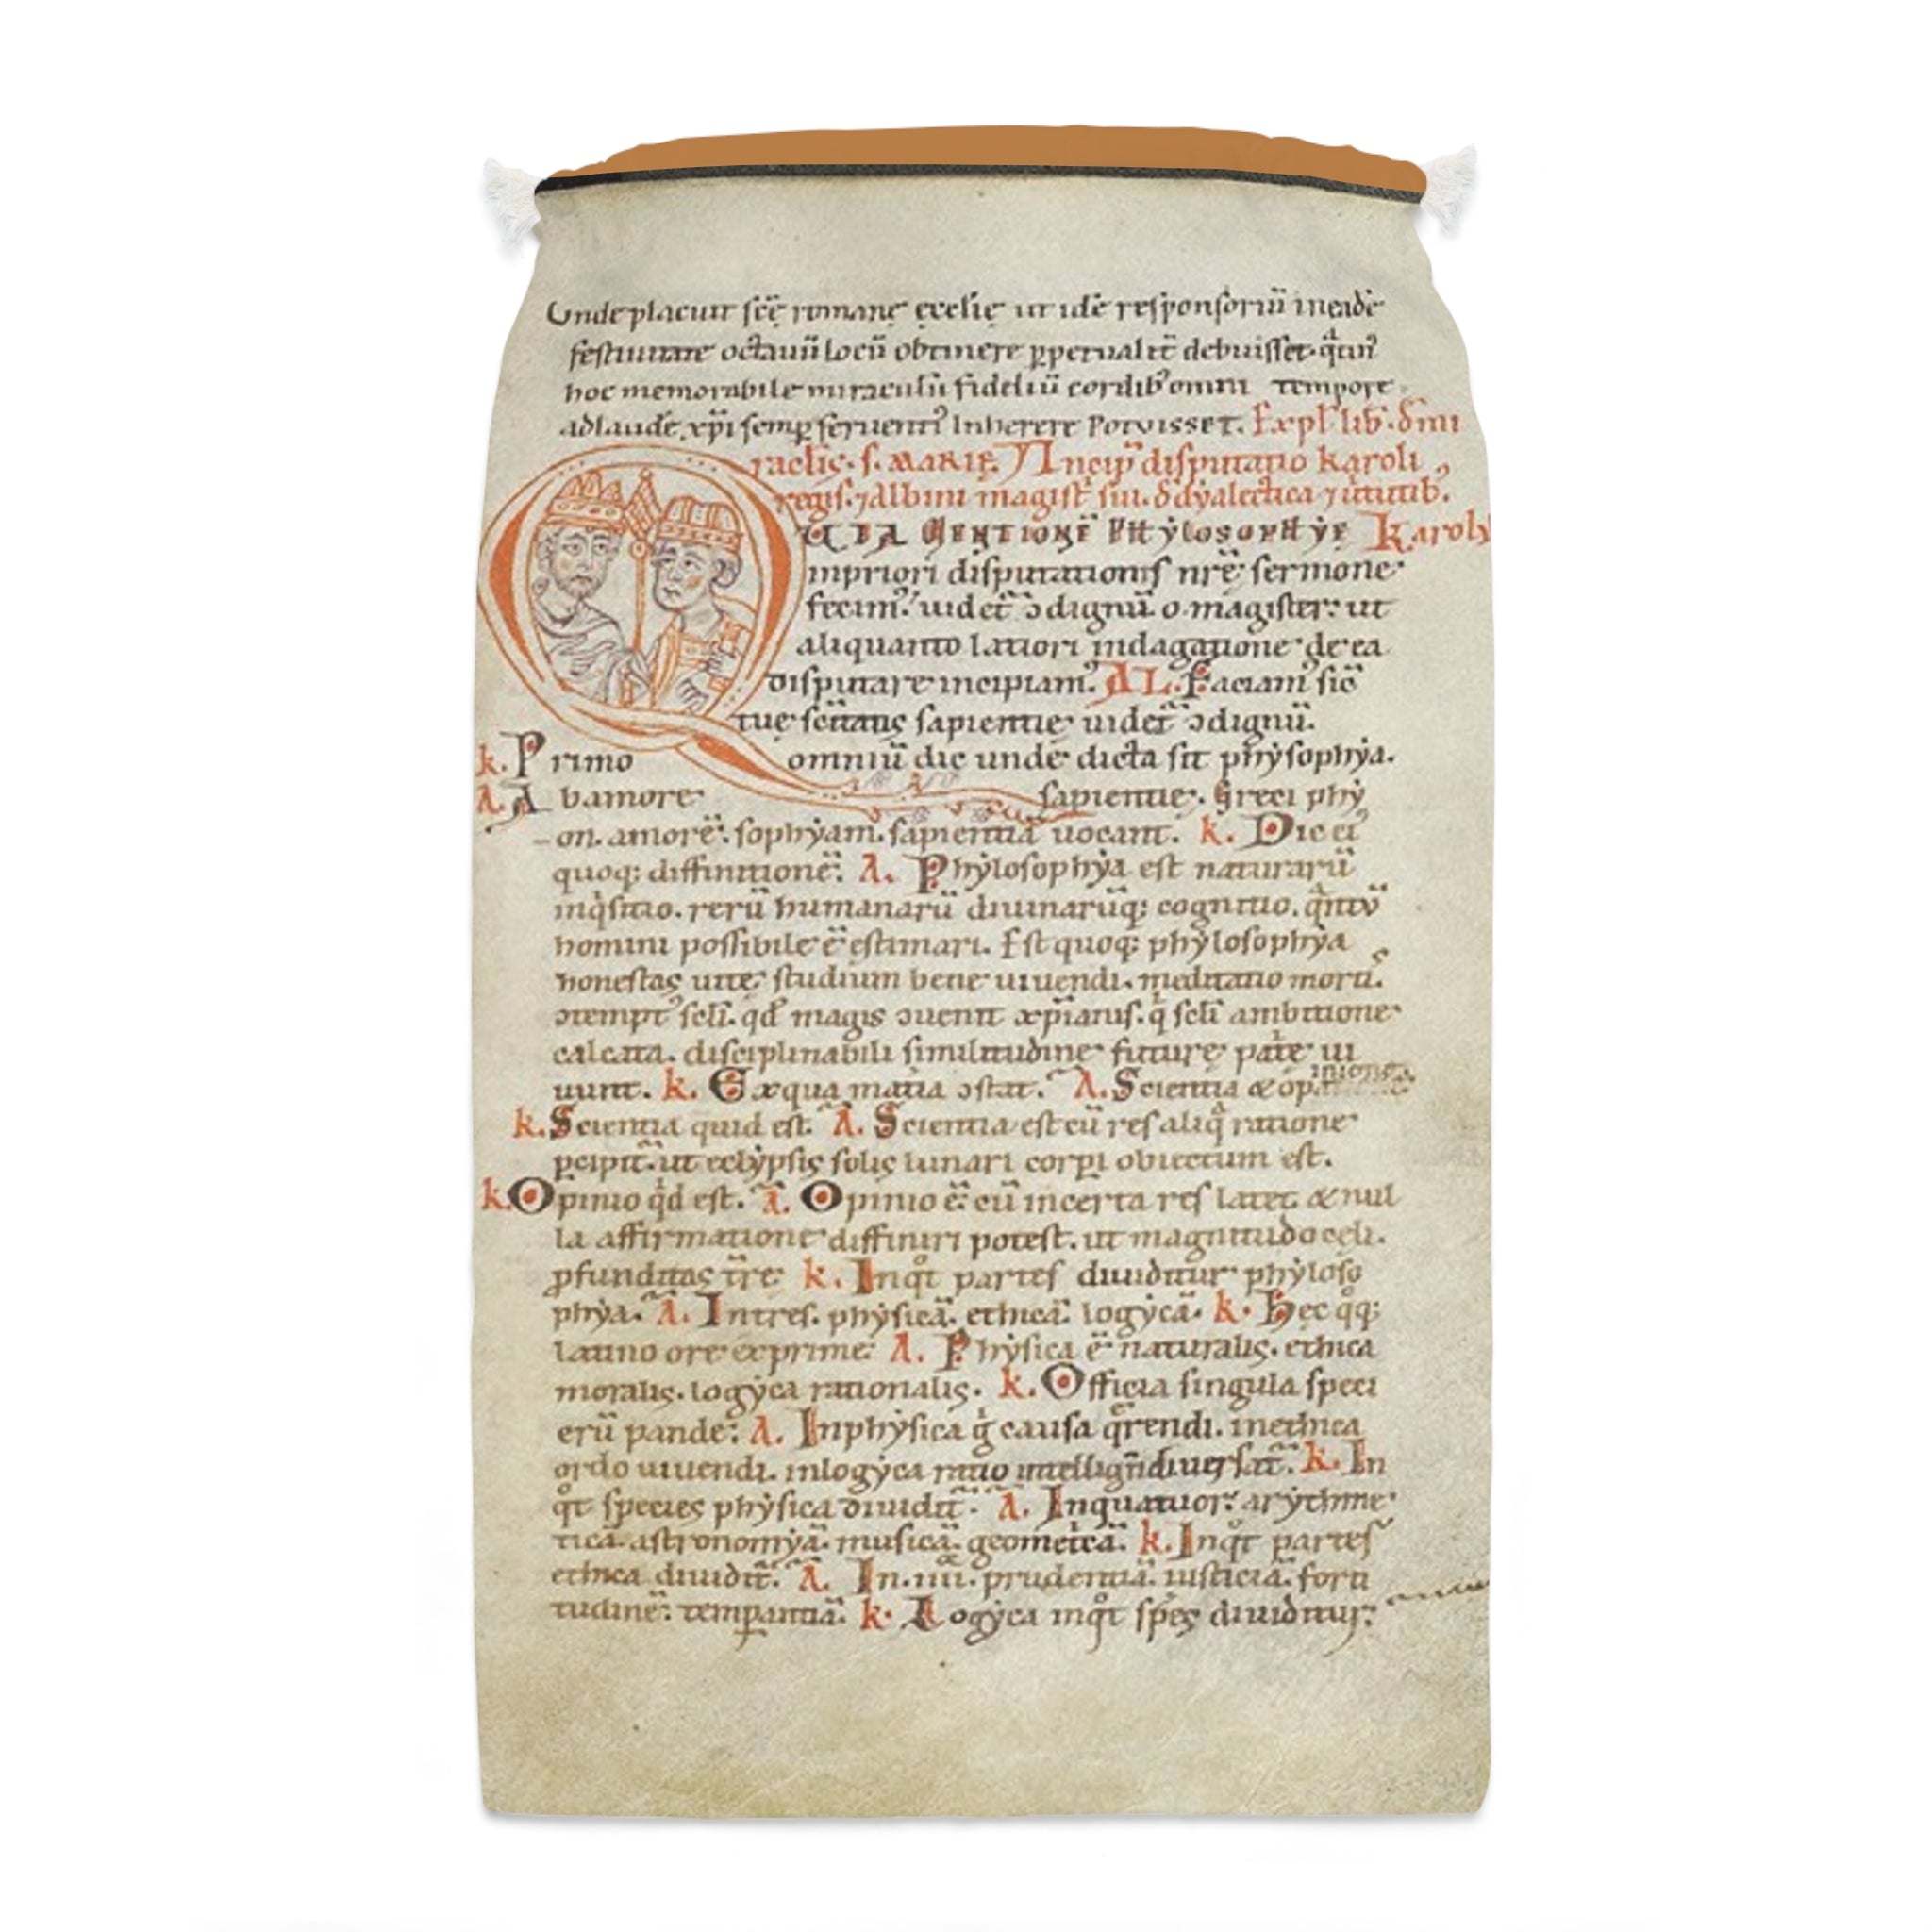 Unde placuit scē romanę ęcclię ut idē responsoriū in eadē
festiuitate octauū locū obtinere ꝑpetualit̄ debuisset. q̇tin᾽
hoc memorabile miraculū fideliū cordib᾽ omni tempore
ad laudē xp̄i semꝑ seruent᾽ Inherere Potuisset. Expl̄ lib̄. dn̄i
racl̄is. s. MARIĘ. Incip̄ disputatio karoli
regis. ⁊ Albini magist̄ sui. d̄ dyalectica ⁊ uirtutib᾽.
QUIA MENTIONĒ PHYLOSOPHYĘ Karoly
in priori disputationis nr̄ę sermone
fecim᾽. uidet̄ ↄdignū o magister. ut
aliquanto latiori indagatione de ea
disputare incipiam᾽. AL. Faciam᾽ sic̄
tuę scītatis sapientię uidet̄ ↄdignū.
k. Primo omniū dic unde dicta sit phylsophya.
A. Ab amore sapientię. Greci phy
on. amorē. sophyam. sapientiā uocant. k. Dic ei᾽
quoq; diffinitionē. A. Phylosophya est naturarū
inq̇sitio. rerū humanarū diuinarūq; cognitio. q̇ntū
homini possibile ē estimari. Est quoq; phylosophya
honestas uitę. studium bene uiuendi. meditatio mortis.
ↄtempt᾽ sclī. qđ magis ↄuenit xp̄ianis. q̇ sclī ambitione
calcata. disciplinabili similitudine futurę pat̄ę ui
uunt. k. Ex qua mat̄ia ↄstat. A. Scientia & opinione
k. Scientia quid est. A. Scientia est cū res aliq̇ ratione
ꝑcipit̄. ut eclypsis solis lunari corꝑi obiectum est.
k. Opinio q̇d est. A. Opinio ē. cū incerta res latet. & nul
la affirmatione diffiniri potest. ut magnitudo cęli.
ꝓfunditas t̄rę. k. In qo̊t partes diuiditur phyloso
phya. A. In tres. physicā. ethicā. logycā. k. Hęc q̊q;
latino ore exprime. A. Physica ē naturalis. ethica
moralis. logyca rationalis. k. Officia singula speci
erū pande. A. In physica g̊ causa q̄rendi. in ethica
ordo uiuendi. in logyca ratio intelligendi uersat̄. k. In
q̊t species physica diuidit̄. A. In quatuor. arythme
ticā. astronomyā. musicā. geomet̄cā. k. In q̊t partes
ethica diuidit̄. A. In. iiii. prudentiā. iusticiā. forti
tudinē. temꝑantiā. k. Logyca in q̊t sp̄es diuiditur.